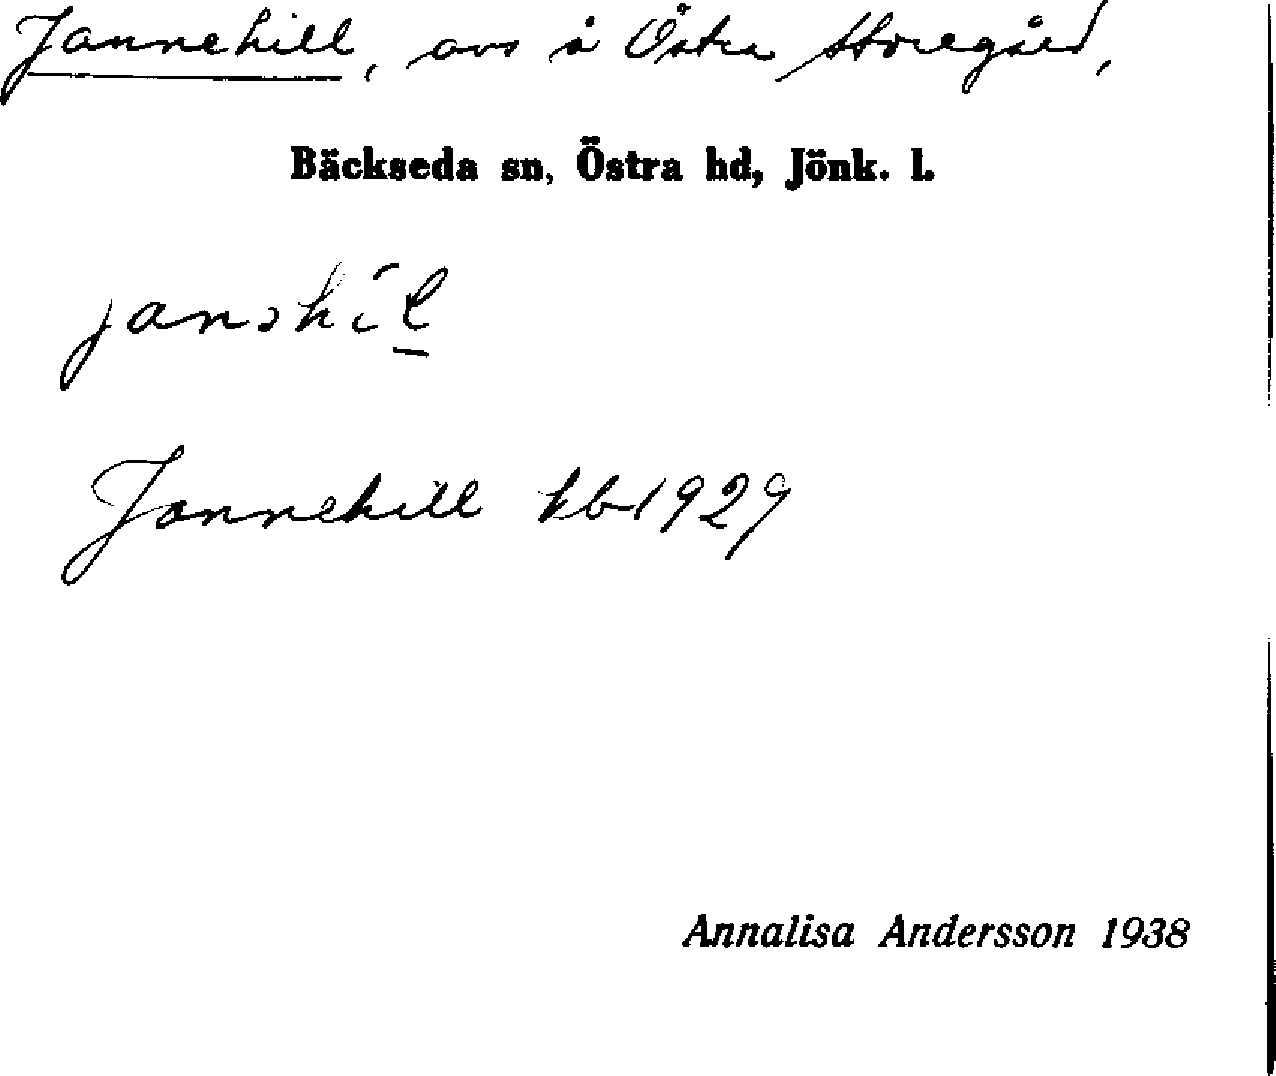 Jannehill, avs å Östra Storegård,
Bäckseda sn, Östra hd, Jönk. l.
janəhíl
Jannehill kb 1929
Annalisa Andersson 1938